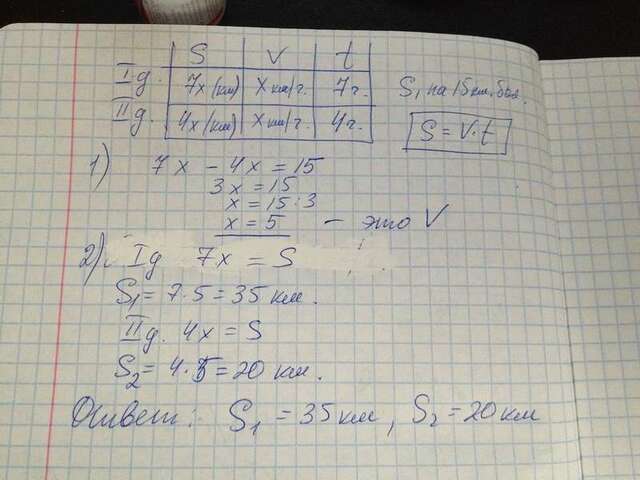 S V t
I д. 7x (км) x км/ч. 7 ч.
II д. 4x (км) x км/ч. 4 ч.
S₁ на 15 км. бол.
S = V·t
1) 7x - 4x = 15
3x = 15
x = 15:3
x = 5 - это V
2) I д 7x = S
S₁ = 7·5 = 35 км.
II д. 4x = S
S₂ = 4·5 = 20 км.
Ответ: S₁ = 35 км, S₂ = 20 км